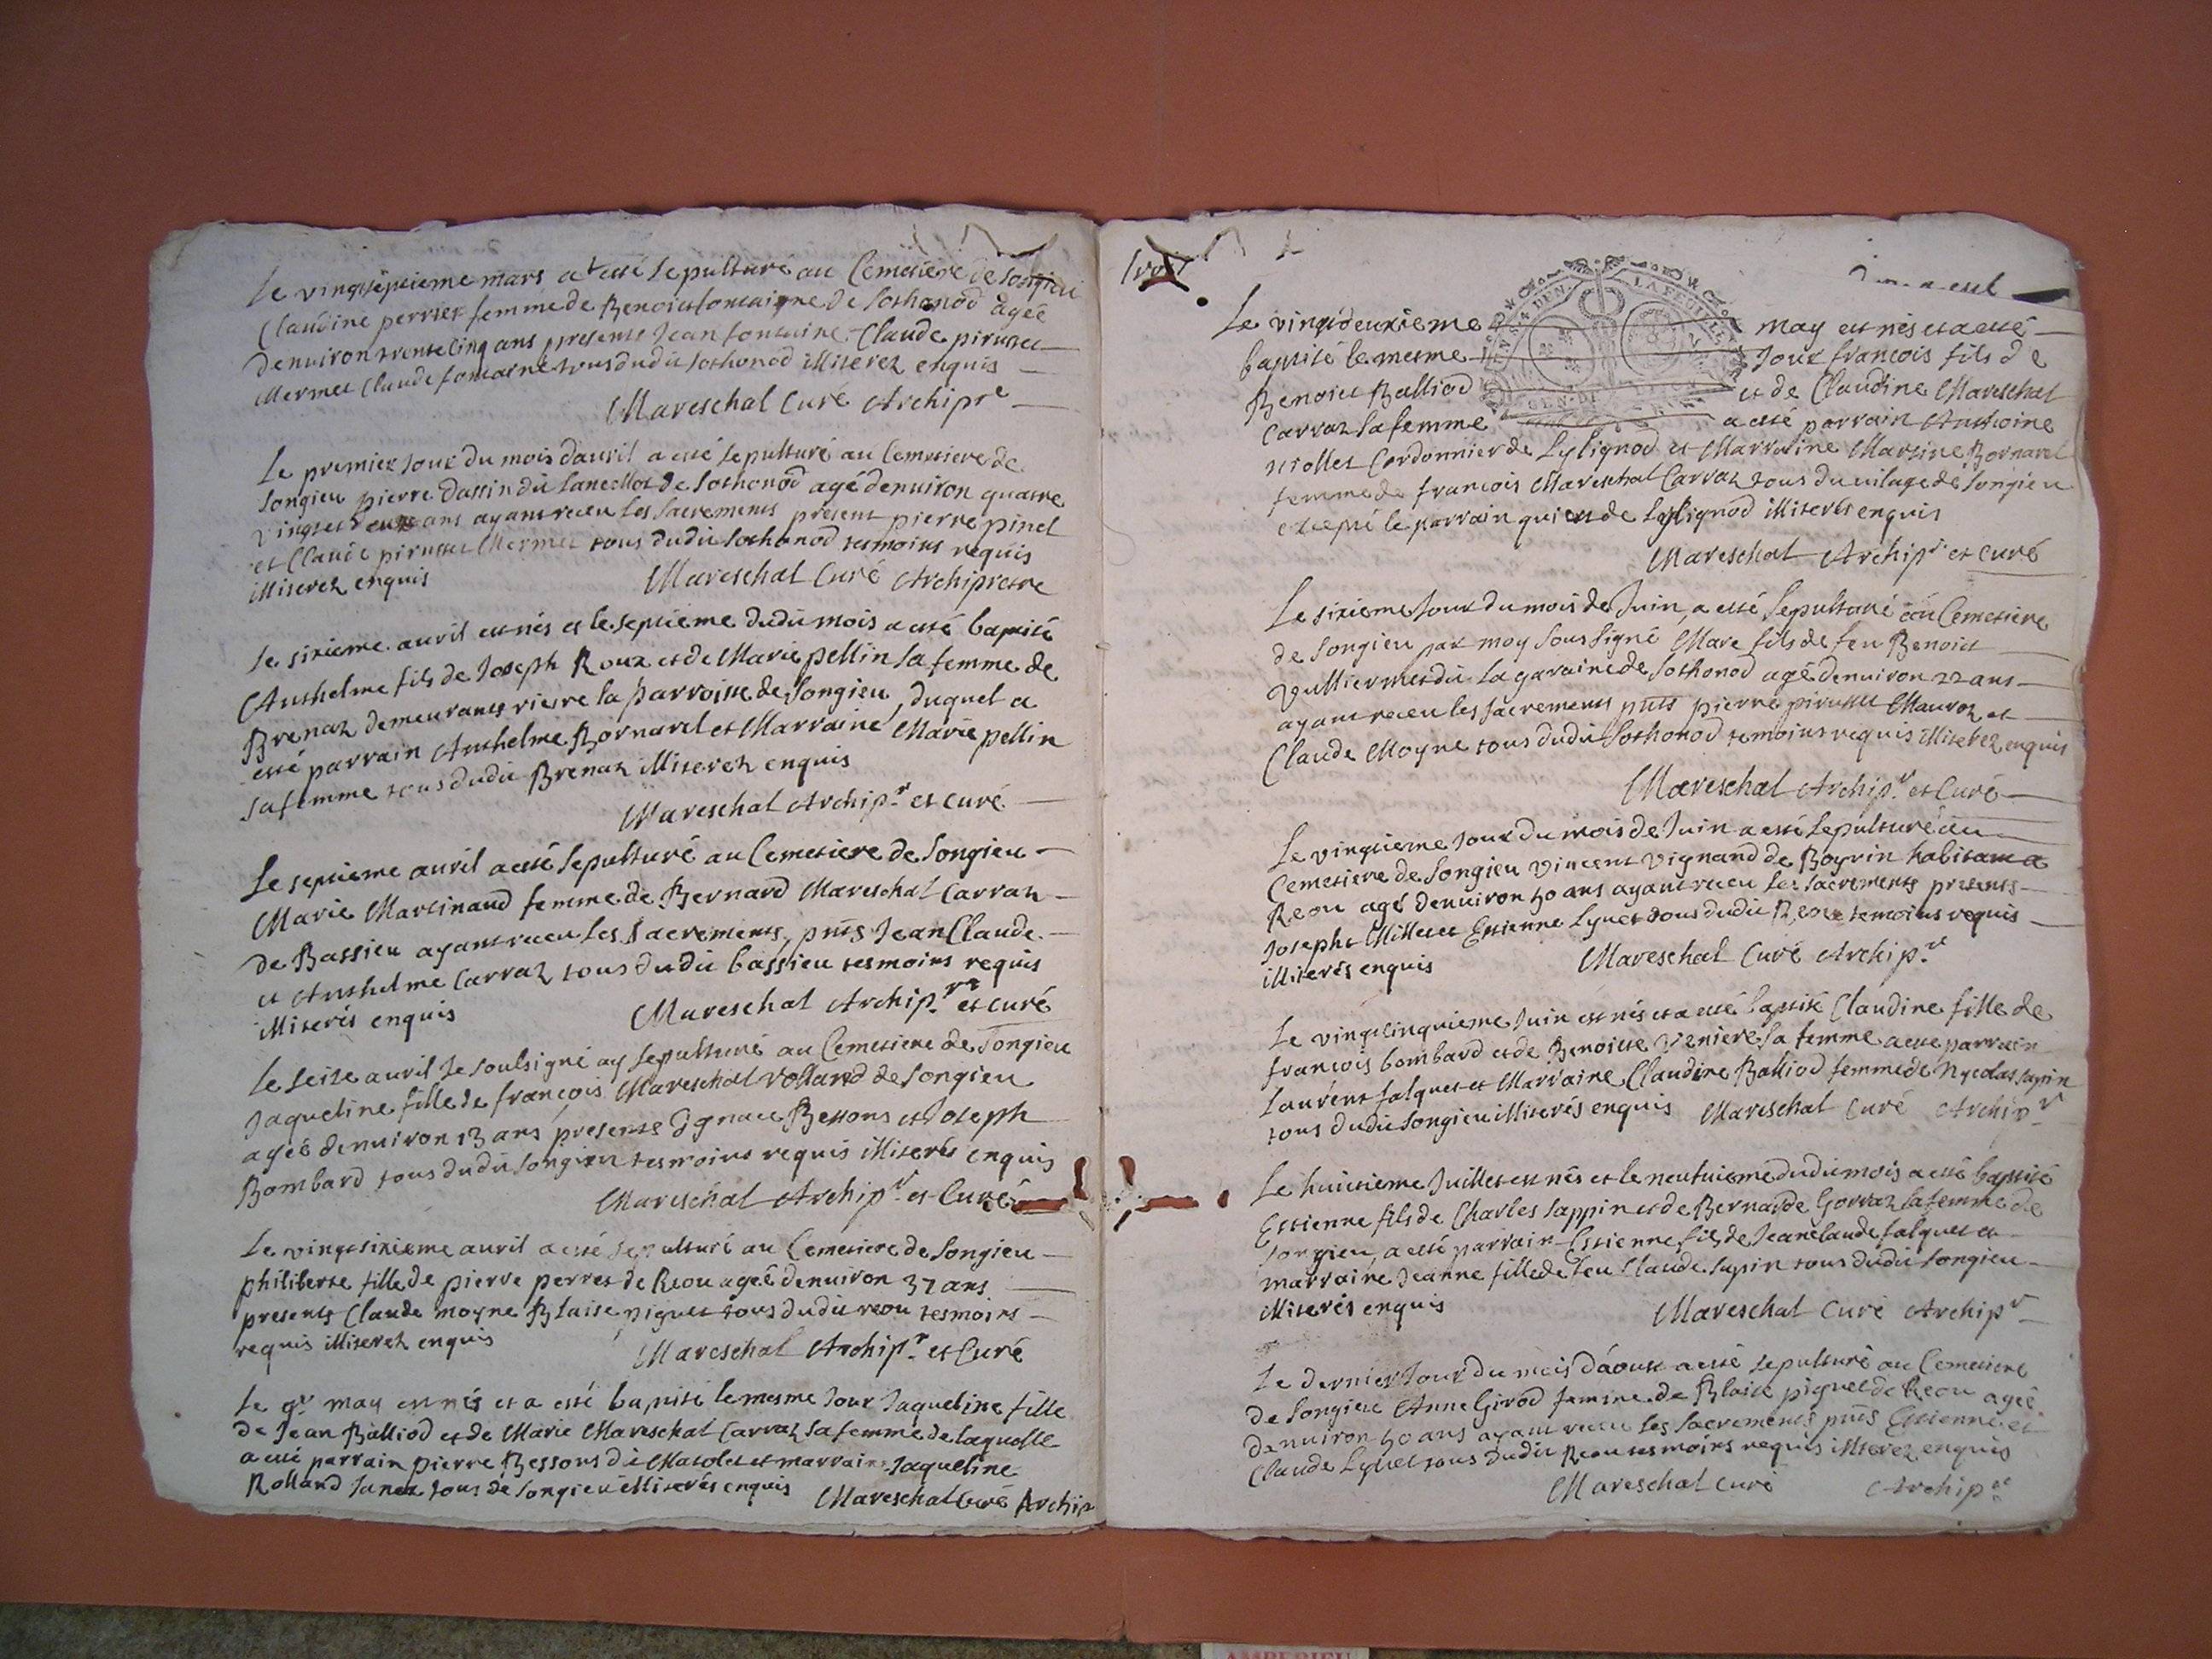 Le vingtseptieme mars a esté sepulturé au Cemetiere de Songieu
Claudine perrier femme de Benoict fontaigne de Sothonod agée
denuiron trente cinq ans presents Jean fontaine Claude pirusset
Mermet Claude fontaine tous dudit Sothonod illiterez enquis
Mareschal Curé Archipre
Le premier Jour du mois dauril a esté sepulturé au Cemetiere de
Songieu pierre dassin dit Lancellot de Sothonod agé denuiron quatre
vingts ans ayant receu les sacrements present pierre pinet
et Claude pirusset Mermet tous dudit Sothonod tesmoins requis
illiterez enquis Mareschal Curé Archiprestre
Le sixieme auril est nés et le septieme dudit mois a esté baptisé
Anthelme fils de Joseph Roux et de Marie pellin sa femme de
Brenaz demeurants riere la parroisse de Songieu, duquel a
esté parrain Anthelme Bornarel et Marraine Marie pellin
sa femme tous dudit Brenaz illiterez enquis
Mareschal Archipr et curé
Le septieme auril a esté sepulturé au Cemetiere de Songieu
Marie Martinand femme de Bernard Mareschal Carraz
de Bassieu ayant receu les Sacrements, pnts Jean Claude
et Anthelme Carraz tous dudit bassieu tesmoins requis
illiterés enquis Mareschal Archipre et curé
Le seize auril Je soulsigné ay sepulturé au Cemetiere de Songieu
Jaqueline fille de françois Mareschal Volland de Songieu
agée denuiron 13 ans presents Ignace Bessons et Joseph
Bombard tous dudit Songieu tesmoins requis illiterés enquis
Mareschal Archipr et Curé
Le vingtsixieme auril a esté sepulturé au Cemetiere de Songieu
philiberte fille de pierre perret de Reou agée denuiron 37 ans
presents Claude moyne Blaise piguet tous dudit reou tesmoins
requis illiterez enquis Mareschal Archipr et Curé
Le may est nés et a esté baptisé le mesme Jour Jaqueline fille
de Jean Balliod et de Marie Mareschal Carraz sa femme de laquelle
a esté parrain pierre Bessons dit Matolet et marraine Jaqueline
Rolland tous de Songieu illiterés enquis Mareschal Curé Archip
Le vingtdeuxieme may est nés et a esté
baptisé le mesme Jour francois fils de
Benoict Balliod et de Claudine Mareschal
Carraz sa femme a esté parrain Anthoine
niollet Cordonnier de Lylignod et Marraine Martine Bornarel
femme de francois Mareschal Carraz tous du uilage de Songieu
excepté le parrain qui est de Lylignod illiterés enquis
Mareschal Archipr et curé
Le sixieme Jour du mois de Juin, a esté sepulturé au Cemetiere
de Songieu par moy soussigné Marc fils de feu Benoict
Vulliermet dit La garaine de Sothonod agé denuiron 22 ans
ayant receu les sacrements pnts pierre pirusset Mauroz et
Claude Moyne tous dudit Sothonod temoins requis illiterez enquis
Mareschal Archipr et Curé
Le vingtieme Jour du mois de Juin a esté sepulturé au
Cemetiere de Songieu Vincent Vignand de Boyrin habitant a
Reou agé denuiron 50 ans ayant receu les sacrements presents
Joseph Millet et Estienne Lyuet tous dudit Reou temoins requis
illiterés enquis Mareschal Curé Archipre
Le vingtcinquieme Juin est nés et a esté baptisé Claudine fille de
francois bombard et de Benoitte Veniere sa femme a esté parrain
Laurent falquet et Marraine Claudine Balliod femme de Nycolas sapin
tous dudit Songieu illiterés enquis Mareschal Curé Archipr
Le huictieme Juillet est nés et le neufuieme dudit mois a esté baptisé
Estienne fils de Charles sappin et de Bernarde Gorraz sa femme de
Songieu, a esté parrain Estienne fils de Jeanclaude falquet et
marraine Jeanne fille de feu Claude sapin tous dudit Songieu
illiterés enquis Mareschal Curé Archipr
Le dernier Jour du mois d'aoust a esté sepulturé au Cemetiere
de Songieu Anne Girod femme de Blaise piguet de Reou agée
denuiron 50 ans ayant receu les sacrements pnts Estienne et
Claude Lyuet tous dudit Reou tesmoins requis illiterez enquis
Mareschal curé Archipre